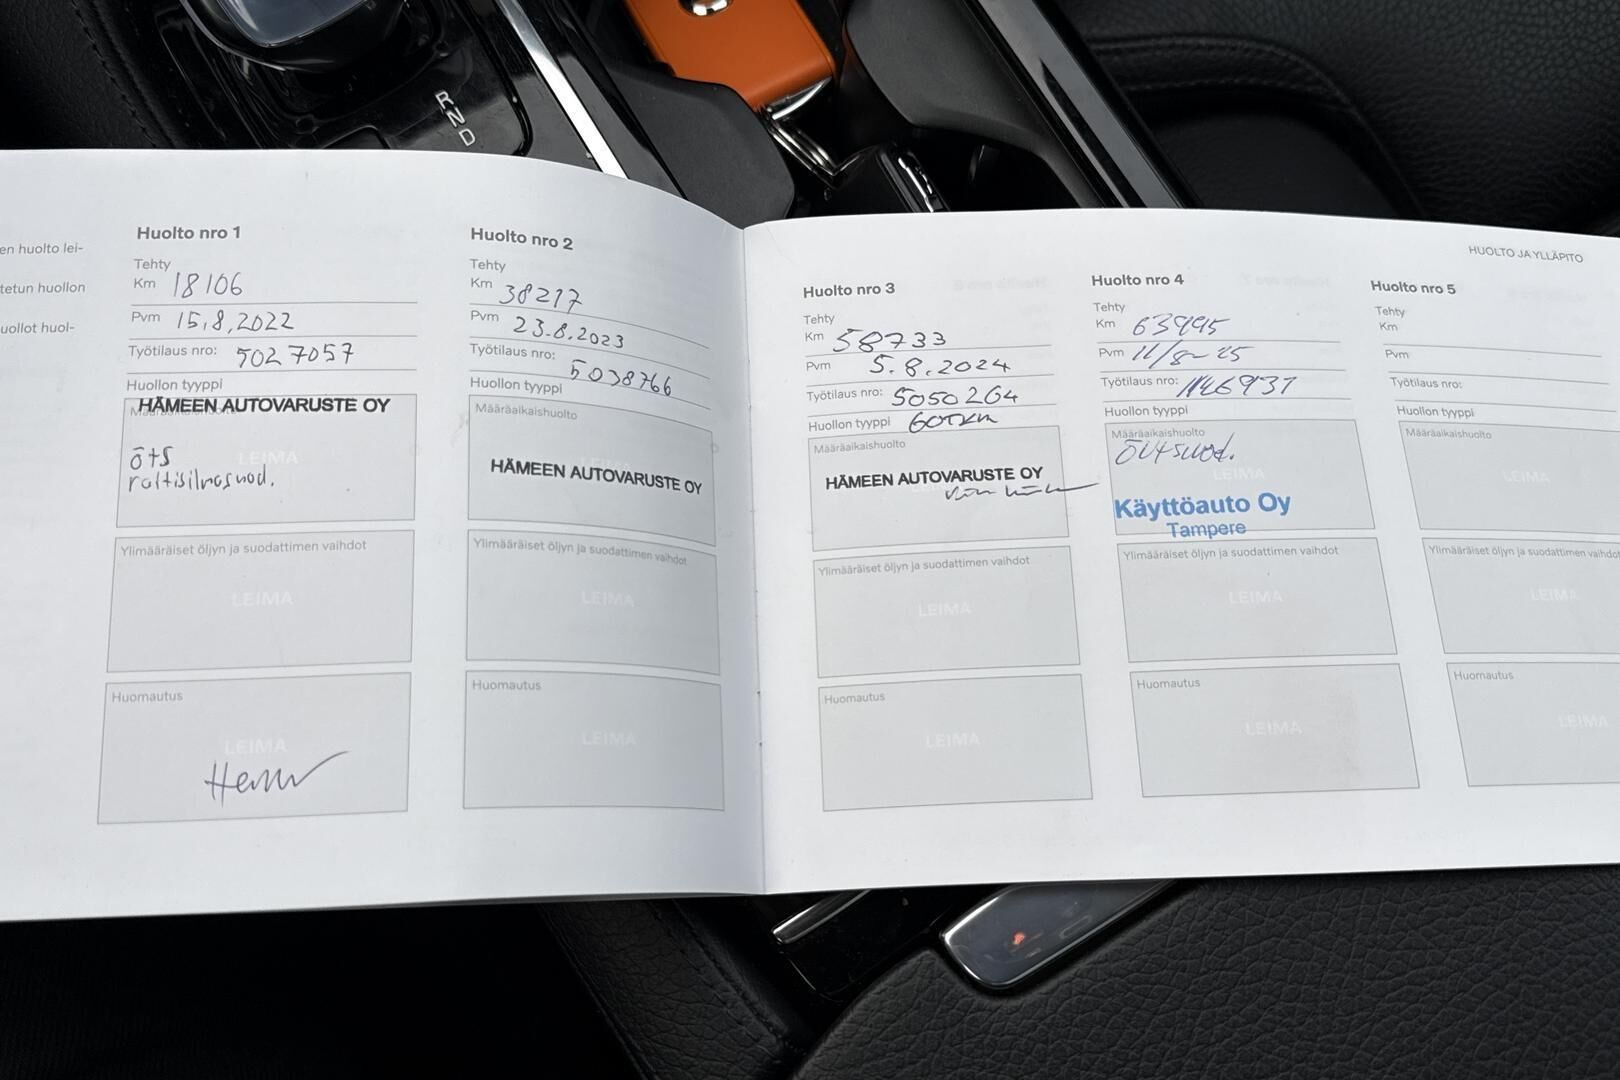 R
N
D
en huolto lei-
tetun huollon
uollot huol-
Huolto nro 1
Tehty
Km 18106
Pvm 15.8.2022
Työtilaus nro: 5027057
Huollon tyyppi
HÄMEEN AUTOVARUSTE OY
LEIMA
öts
Ylimääräiset öljyn ja suodattimen vaihdot
LEIMA
Huomautus
LEIMA
Huolto nro 2
Tehty
Km 38217
Pvm 23.8.2023
Työtilaus nro: 5038766
Huollon tyyppi
Määräaikaishuolto
HÄMEEN AUTOVARUSTE OY
Ylimääräiset öljyn ja suodattimen vaihdot
LEIMA
Huomautus
LEIMA
HUOLTO JA YLLÄPITO
Huolto nro 3
Tehty
Km 58733
Pvm 5.8.2024
Työtilaus nro: 5050264
Huollon tyyppi 60Tkm
Määräaikaishuolto
HÄMEEN AUTOVARUSTE OY
Ylimääräiset öljyn ja suodattimen vaihdot
LEIMA
Huomautus
LEIMA
Huolto nro 4
Tehty
Km 63995
Pvm 11/8-25
Työtilaus nro:
Huollon tyyppi
Määräaikaishuolto
LEIMA
Käyttöauto Oy
Tampere
Ylimääräiset öljyn ja suodattimen vaihdot
LEIMA
Huomautus
LEIMA
Huolto nro 5
Tehty
Km
Pvm
Työtilaus nro:
Huollon tyyppi
Määräaikaishuolto
LEIMA
Ylimääräiset öljyn ja suodattimen vaihdot
LEIMA
Huomautus
LEIMA